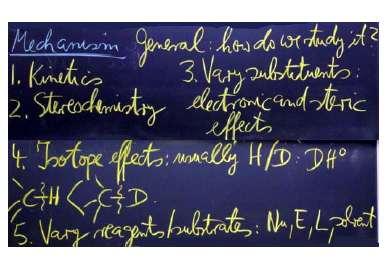 Mechanism General: how do we study it?
1. Kinetics
2. Stereochemistry
3. Vary substituents:
electronic and steric
effects
4. Isotope effects: usually H/D: DH°
C H < C D.
5. Vary reagents/substrates: Nu, E, L, solvent